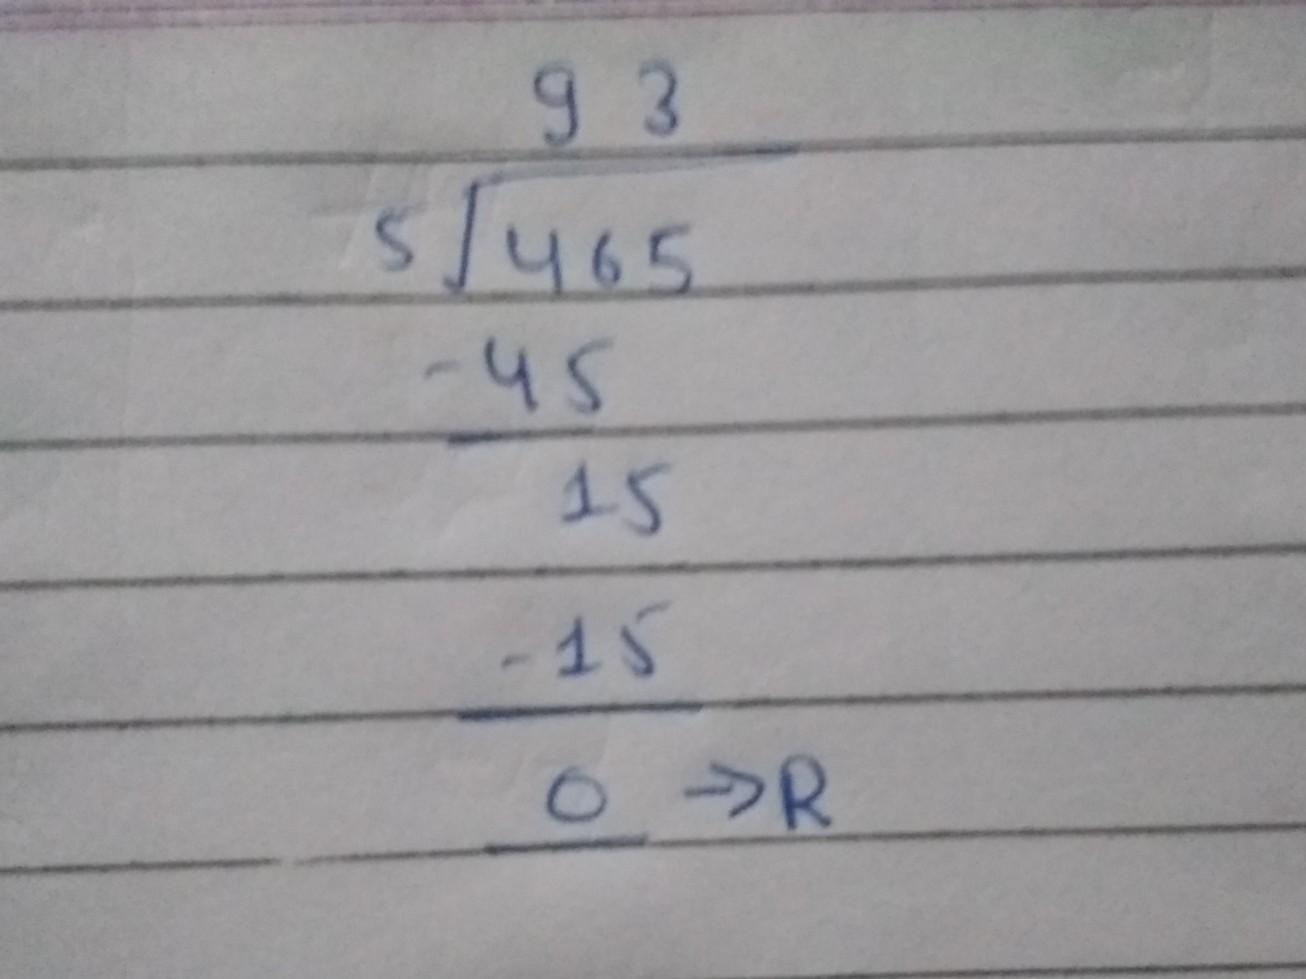 93
5√465
-45
15
-15
0 →R